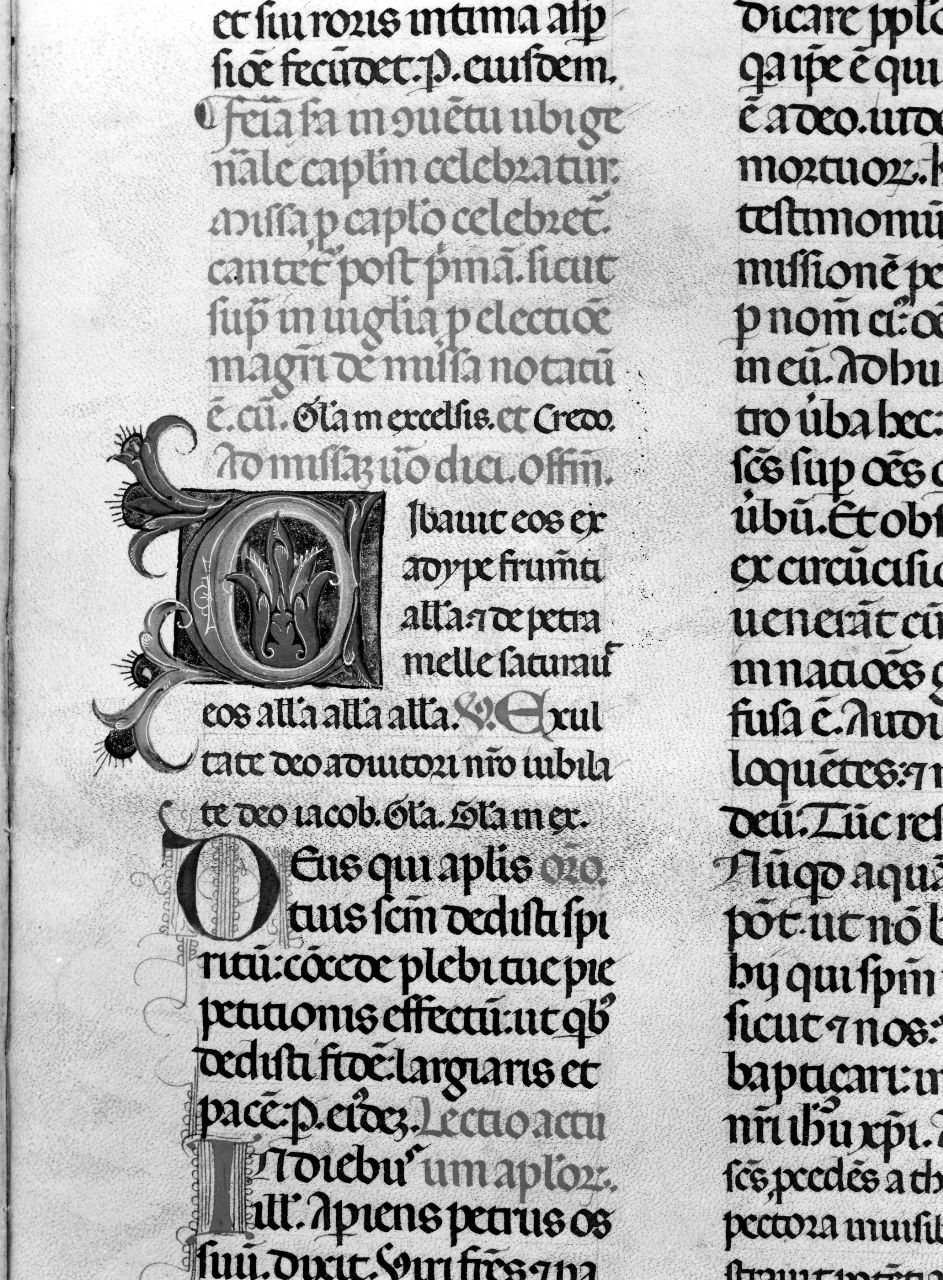 et sui roris intima asp̄
siōe fecūdet. P. eiusdem.
Feīa sc̄a in ꝯuētu ubi ge
nāle capl̄m celebratur:
missa p̱ capl̓o celebret᷑.
cantet᷑ post p̓mā. sicut
sup̄ in uigl̓ia p̱ electiōe
magr̄i de missa notatū
ē. cū. Gl̓a in excelsis. et Credo.
Ad missaꝫ u̓o diei. offm̄.
Cibauit eos ex
adype frum̄ti
all̓a. ⁊ de petra
melle saturauit
eos all̓a all̓a all̓a. V. Exul
tate deo adiutori nr̄o iubila
te deo iacob. Gl̓a. Gl̓a in ex.
Deus qui aplis or̄o.
tuis scm̄ dedisti spi
ritū: cōcede plebi tue pie
petitionis effectū: ut qb᷒
dedisti fidē: largiaris et
pacē. P. ei᷒deꝫ. Lectio actu
In diebu᷒ um apl̓oꝝ.
ill̓. Ap̱iens petrus os
suū. dixit. Viri fr̄es ⁊ pa
dicare ppl̓o
q̓a ip̄e ē qui
ē a deo. iude
mortuoꝝ. h
testimoniū
missionē pe
p̱ nom̄ ei᷒: oē
in eū. Adhu
tro u̓ba hec:
sc̄s sup̱ oēs
u̓bū. Et obs
ex circūcisio
uenerāt cū
in natiōes g
fusa ē. Audi
loquētes: ⁊
deū. Tūc res
Nūqd aquā
pōt: ut nō b
hij qui spm̄
sicut ⁊ nos:
baptiçari: in
nr̄i ihū xp̄i.
sc̄s, p̱cedēs a th
pectora inuisib